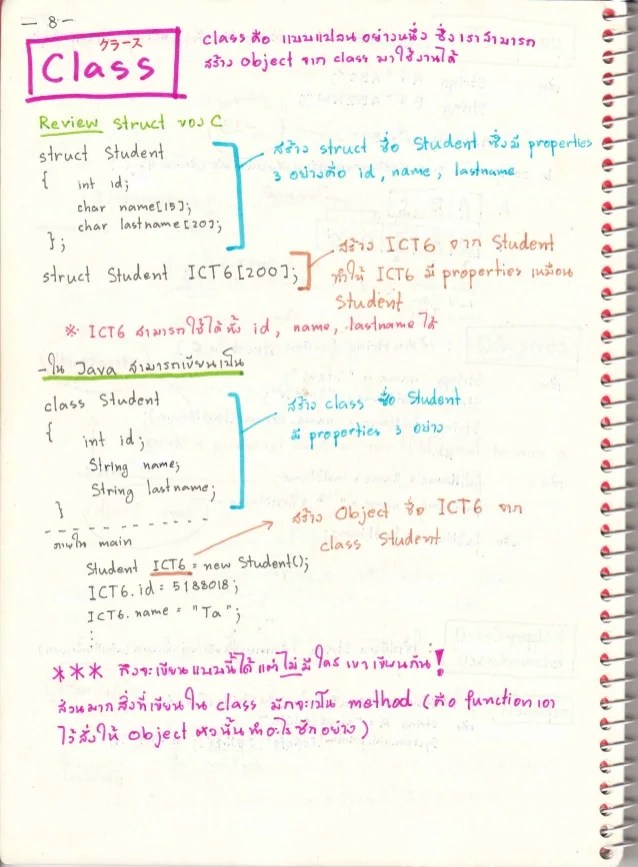 - 8 -
クラース
Class
class คือ แบบแปลน อย่างหนึ่ง ซึ่งเราสามารถ
สร้าง object จาก class มาใช้งานได้
Review struct ของ C
struct Student
{
int id;
char name[15];
char lastname[20];
};
สร้าง struct ชื่อ Student ซึ่งมี properties
3 อย่างคือ id, name, lastname
struct Student ICT6[200];
สร้าง ICT6 จาก Student
ทำให้ ICT6 มี properties เหมือน
Student
※ ICT6 สามารถใช้ได้ทั้ง id, name, lastname ได้
- ใน Java สามารถเขียนเป็น
class Student
{
int id;
String name;
String lastname;
}
สร้าง class ชื่อ Student
มี properties 3 อย่าง
ภายใน main
Student ICT6 = new Student();
ICT6.id = 5188018;
ICT6.name = "Ta";
⋮
สร้าง Object ชื่อ ICT6 จาก
class Student
*** ถึงจะเขียนแบบนี้ได้ แต่ไม่มีใครเขาเขียนกัน!
ส่วนมาก สิ่งที่เขียนใน class มักจะเป็น method (คือ function เอา
ไว้สั่งให้ object ตัวนั้นทำอะไรซักอย่าง)